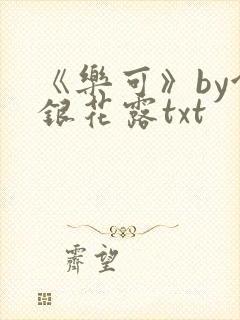 《樂可》by
銀花露txt
霽望